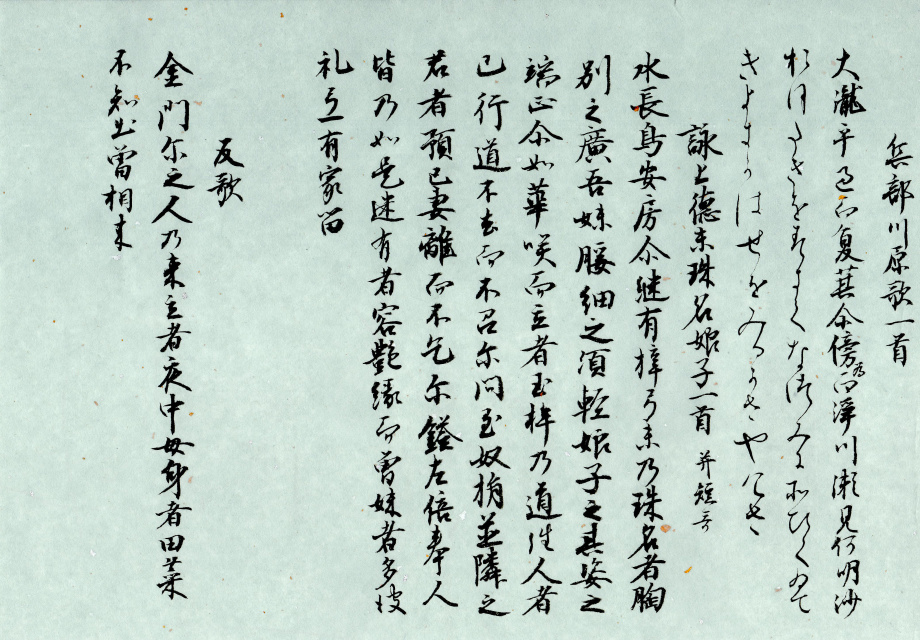 兵部川原歌一首
大瀧乎過而夏箕尒傍為而浄川瀬見何明沙
おほたきをすきてなつみにそひてゐて
きよきかはせをみるかさやけさ
詠上徳末珠名娘子一首 并短哥
水長鳥安房尒継有梓弓末乃珠名者胸
別之廣吾妹腰細之須軽娘子之其姿之
端正尒如華咲而立者玉桙乃道往人者
己行道不去而不召尓問至奴指並隣之
君者預己妻離而不乞尓鎰左倍奉人
皆乃如是迷有者容艶縁而曽妹者多波
礼弖有家留
反歌
金門尓之人乃来立者夜中母身者田菜
不知出曽相来